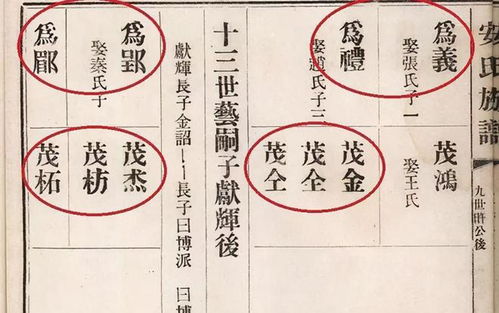 安氏族譜
九世時公後
為義
娶張氏子一
茂鴻
娶王氏
為禮
娶趙氏子三
茂金
茂全
茂仝
十三世藝嗣子獻輝後
獻輝長子金詔——長子曰博派 曰博
為郢
娶秦氏子
茂杰
茂枋
為鄙
茂柘